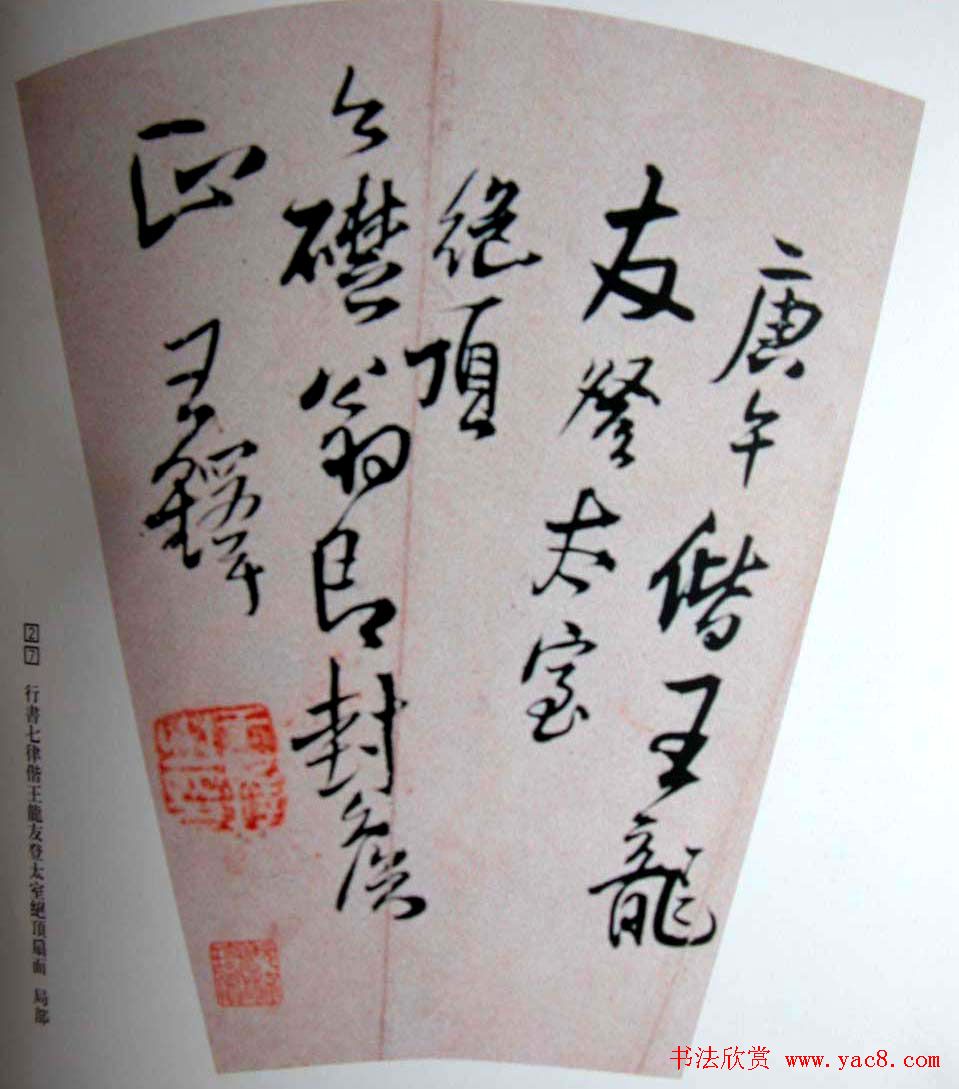 庚午偕王龍
友登太室
絕頂
礎翁封
正 王鐸
27 行書七律偕王龍友登太室絕頂扇面 局部
书法欣赏 www.yac8.com